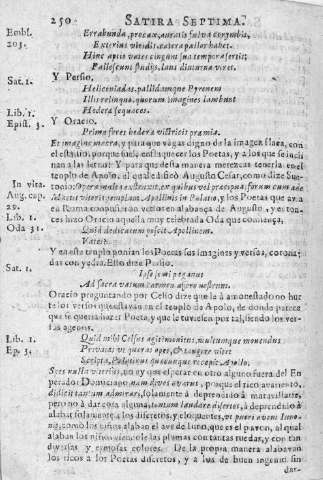 250 SATIRA SEPTIMA.
Embl. Errabunda, procax, auratis fulva corymbis,
203. Exterius viridis, cætera pallor habet.
Hinc aptis vates cingunt sua tempora sertis:
Pallescunt studiis, laus diuturna viret.
Y Persio.
Sat. 1. Heliconiadas, pallidamque Pyrenem
Illis relinquo, quorum imagines lambunt
Hederæ sequaces.
Lib. 1. Y Oracio.
Epist. 3. Prima feres hederæ victricis præmia.
Et imagine macra, y para que vayas digno de la imagen flaca, con
el estudio, porque suele enflaquecer los Poetas, y a los que se inclinan
a las letras: Y para que desta manera merezcas tenerla en el
templo de Apolo, el qual edificò Augusto Cesar, como dize Suetonio:
In vita
Aug. cap.
29.
templum Apollinis in Palatio, y los Poetas que avia
en Roma
hizo Oracio aquella muy celebrada Oda que comiença:
Lib. 1. Quid dedicatum poscit Apollinem
Oda 31. Vates?
Y en este templo ponian los Poetas sus imagines y versos, coronadas
con yedra. Esto dize Persio.
Sat. 1. Ipse semipaganus
Ad sacra vatum carmen affero nostrum.
Oracio preguntando por Celso dize que le à amonestado no hurte
los versos que estavan en el templo de Apolo, de donde parece
que se queria hazer Poeta, y que le tuviessen por tal,
versos agenos.
Lib. 1. Quid mihi Celsus agit? monitus, multumque monendus
Ep. 3. Privatas ut quærat opes, & tangere vitet
Scripta, Palatinus quæcunque recepit Apollo.
Spes nulla ulterior, no ay que esperar en otro alguno fuera del Emperador
Domiciano: nam dives avarus, porque el rico avariento,
didicit tantum admirari, solamente à deprendido a maravillarse,
pero no a dar cosa alguna, tantum laudare disertos, à deprendido à
alabar solamente a los discretos, y eloquentes, ut pueri avem Junonis,
como los niños alaban el ave de Iuno, que es el pavon, al qual
alaban los niños viendole las plumas con tantas ruedas, y con tan
diversas y hermosas colores. De la propria manera alabavan
los ricos a los Poetas discretos, y a los de buen ingenio sin
dar-